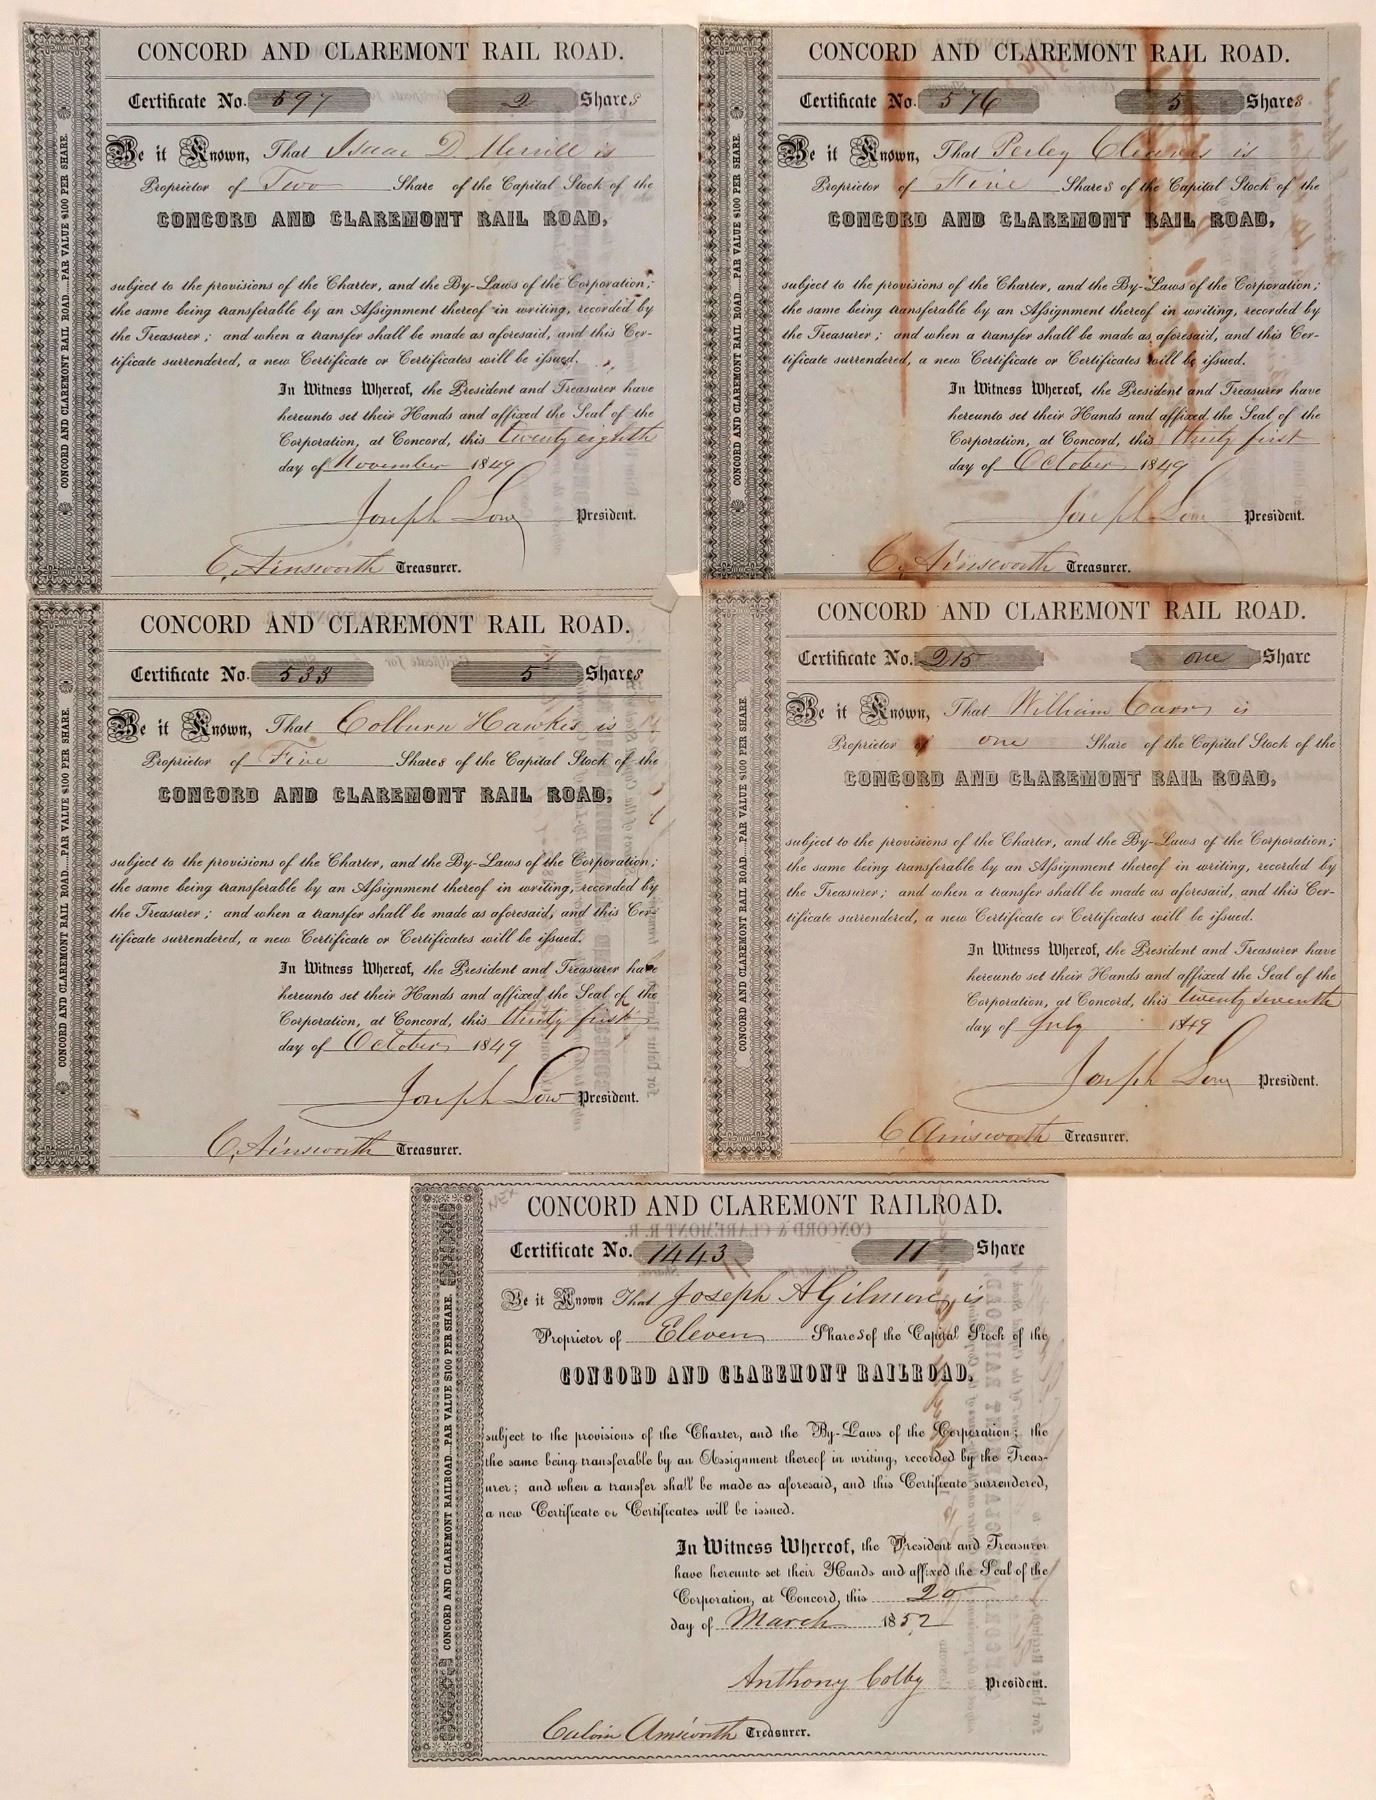 CONCORD AND CLAREMONT RAIL ROAD.
Certificate No. 597 2 Shares
Be it Known, That Isaac D. Merrill is
Proprietor of Two Share of the Capital Stock of the
CONCORD AND CLAREMONT RAIL ROAD,
subject to the provisions of the Charter, and the By-Laws of the Corporation;
the same being transferable by an Assignment thereof in writing, recorded by
the Treasurer; and when a transfer shall be made as aforesaid, and this Cer-
tificate surrendered, a new Certificate or Certificates will be issued.
In Witness Whereof, the President and Treasurer have
hereunto set their Hands and affixed the Seal of the
Corporation, at Concord, this twenty eighth
day of November 1849
Joseph Low President.
C. Ainsworth Treasurer.
CONCORD AND CLAREMONT RAIL ROAD....PAR VALUE $100 PER SHARE.
CONCORD AND CLAREMONT RAIL ROAD.
Certificate No. 576 5 Shares
Be it Known, That Perley Cleaves is
Proprietor of Five Shares of the Capital Stock of the
CONCORD AND CLAREMONT RAIL ROAD,
subject to the provisions of the Charter, and the By-Laws of the Corporation;
the same being transferable by an Assignment thereof in writing, recorded by
the Treasurer; and when a transfer shall be made as aforesaid, and this Cer-
tificate surrendered, a new Certificate or Certificates will be issued.
In Witness Whereof, the President and Treasurer have
hereunto set their Hands and affixed the Seal of the
Corporation, at Concord, this thirty first
day of October 1849
Joseph Low President.
C. Ainsworth Treasurer.
CONCORD AND CLAREMONT RAIL ROAD....PAR VALUE $100 PER SHARE.
CONCORD AND CLAREMONT RAIL ROAD.
Certificate No. 533 5 Shares
Be it Known, That Colburn Hawkes is
Proprietor of Five Shares of the Capital Stock of the
CONCORD AND CLAREMONT RAIL ROAD,
subject to the provisions of the Charter, and the By-Laws of the Corporation;
the same being transferable by an Assignment thereof in writing, recorded by
the Treasurer; and when a transfer shall be made as aforesaid, and this Cer-
tificate surrendered, a new Certificate or Certificates will be issued.
In Witness Whereof, the President and Treasurer have
hereunto set their Hands and affixed the Seal of the
Corporation, at Concord, this thirty first
day of October 1849
Joseph Low President.
C. Ainsworth Treasurer.
CONCORD AND CLAREMONT RAIL ROAD....PAR VALUE $100 PER SHARE.
CONCORD AND CLAREMONT RAIL ROAD.
Certificate No. 215 one Share
Be it Known, That William Carr is
Proprietor of one Share of the Capital Stock of the
CONCORD AND CLAREMONT RAIL ROAD,
subject to the provisions of the Charter, and the By-Laws of the Corporation;
the same being transferable by an Assignment thereof in writing, recorded by
the Treasurer; and when a transfer shall be made as aforesaid, and this Cer-
tificate surrendered, a new Certificate or Certificates will be issued.
In Witness Whereof, the President and Treasurer have
hereunto set their Hands and affixed the Seal of the
Corporation, at Concord, this twenty seventh
day of July 1849
Joseph Low President.
C Ainsworth Treasurer.
CONCORD AND CLAREMONT RAIL ROAD....PAR VALUE $100 PER SHARE.
CONCORD AND CLAREMONT RAILROAD.
CONCORD & CLAREMONT R. R.
Certificate No. 1443 11 Share
Be it Known That Joseph A Gilmore is
Proprietor of Eleven Shares of the Capital Stock of the
CONCORD AND CLAREMONT RAILROAD,
subject to the provisions of the Charter, and the By-Laws of the Corporation; the
the same being transferable by an Assignment thereof in writing, recorded by the Treas-
urer; and when a transfer shall be made as aforesaid, and this Certificate surrendered,
a new Certificate or Certificates will be issued.
In Witness Whereof, the President and Treasurer
have hereunto set their Hands and affixed the Seal of the
Corporation, at Concord, this 20
day of March 1852
Anthony Colby President.
Calvin Ainsworth Treasurer.
CONCORD AND CLAREMONT RAILROAD....PAR VALUE $100 PER SHARE.